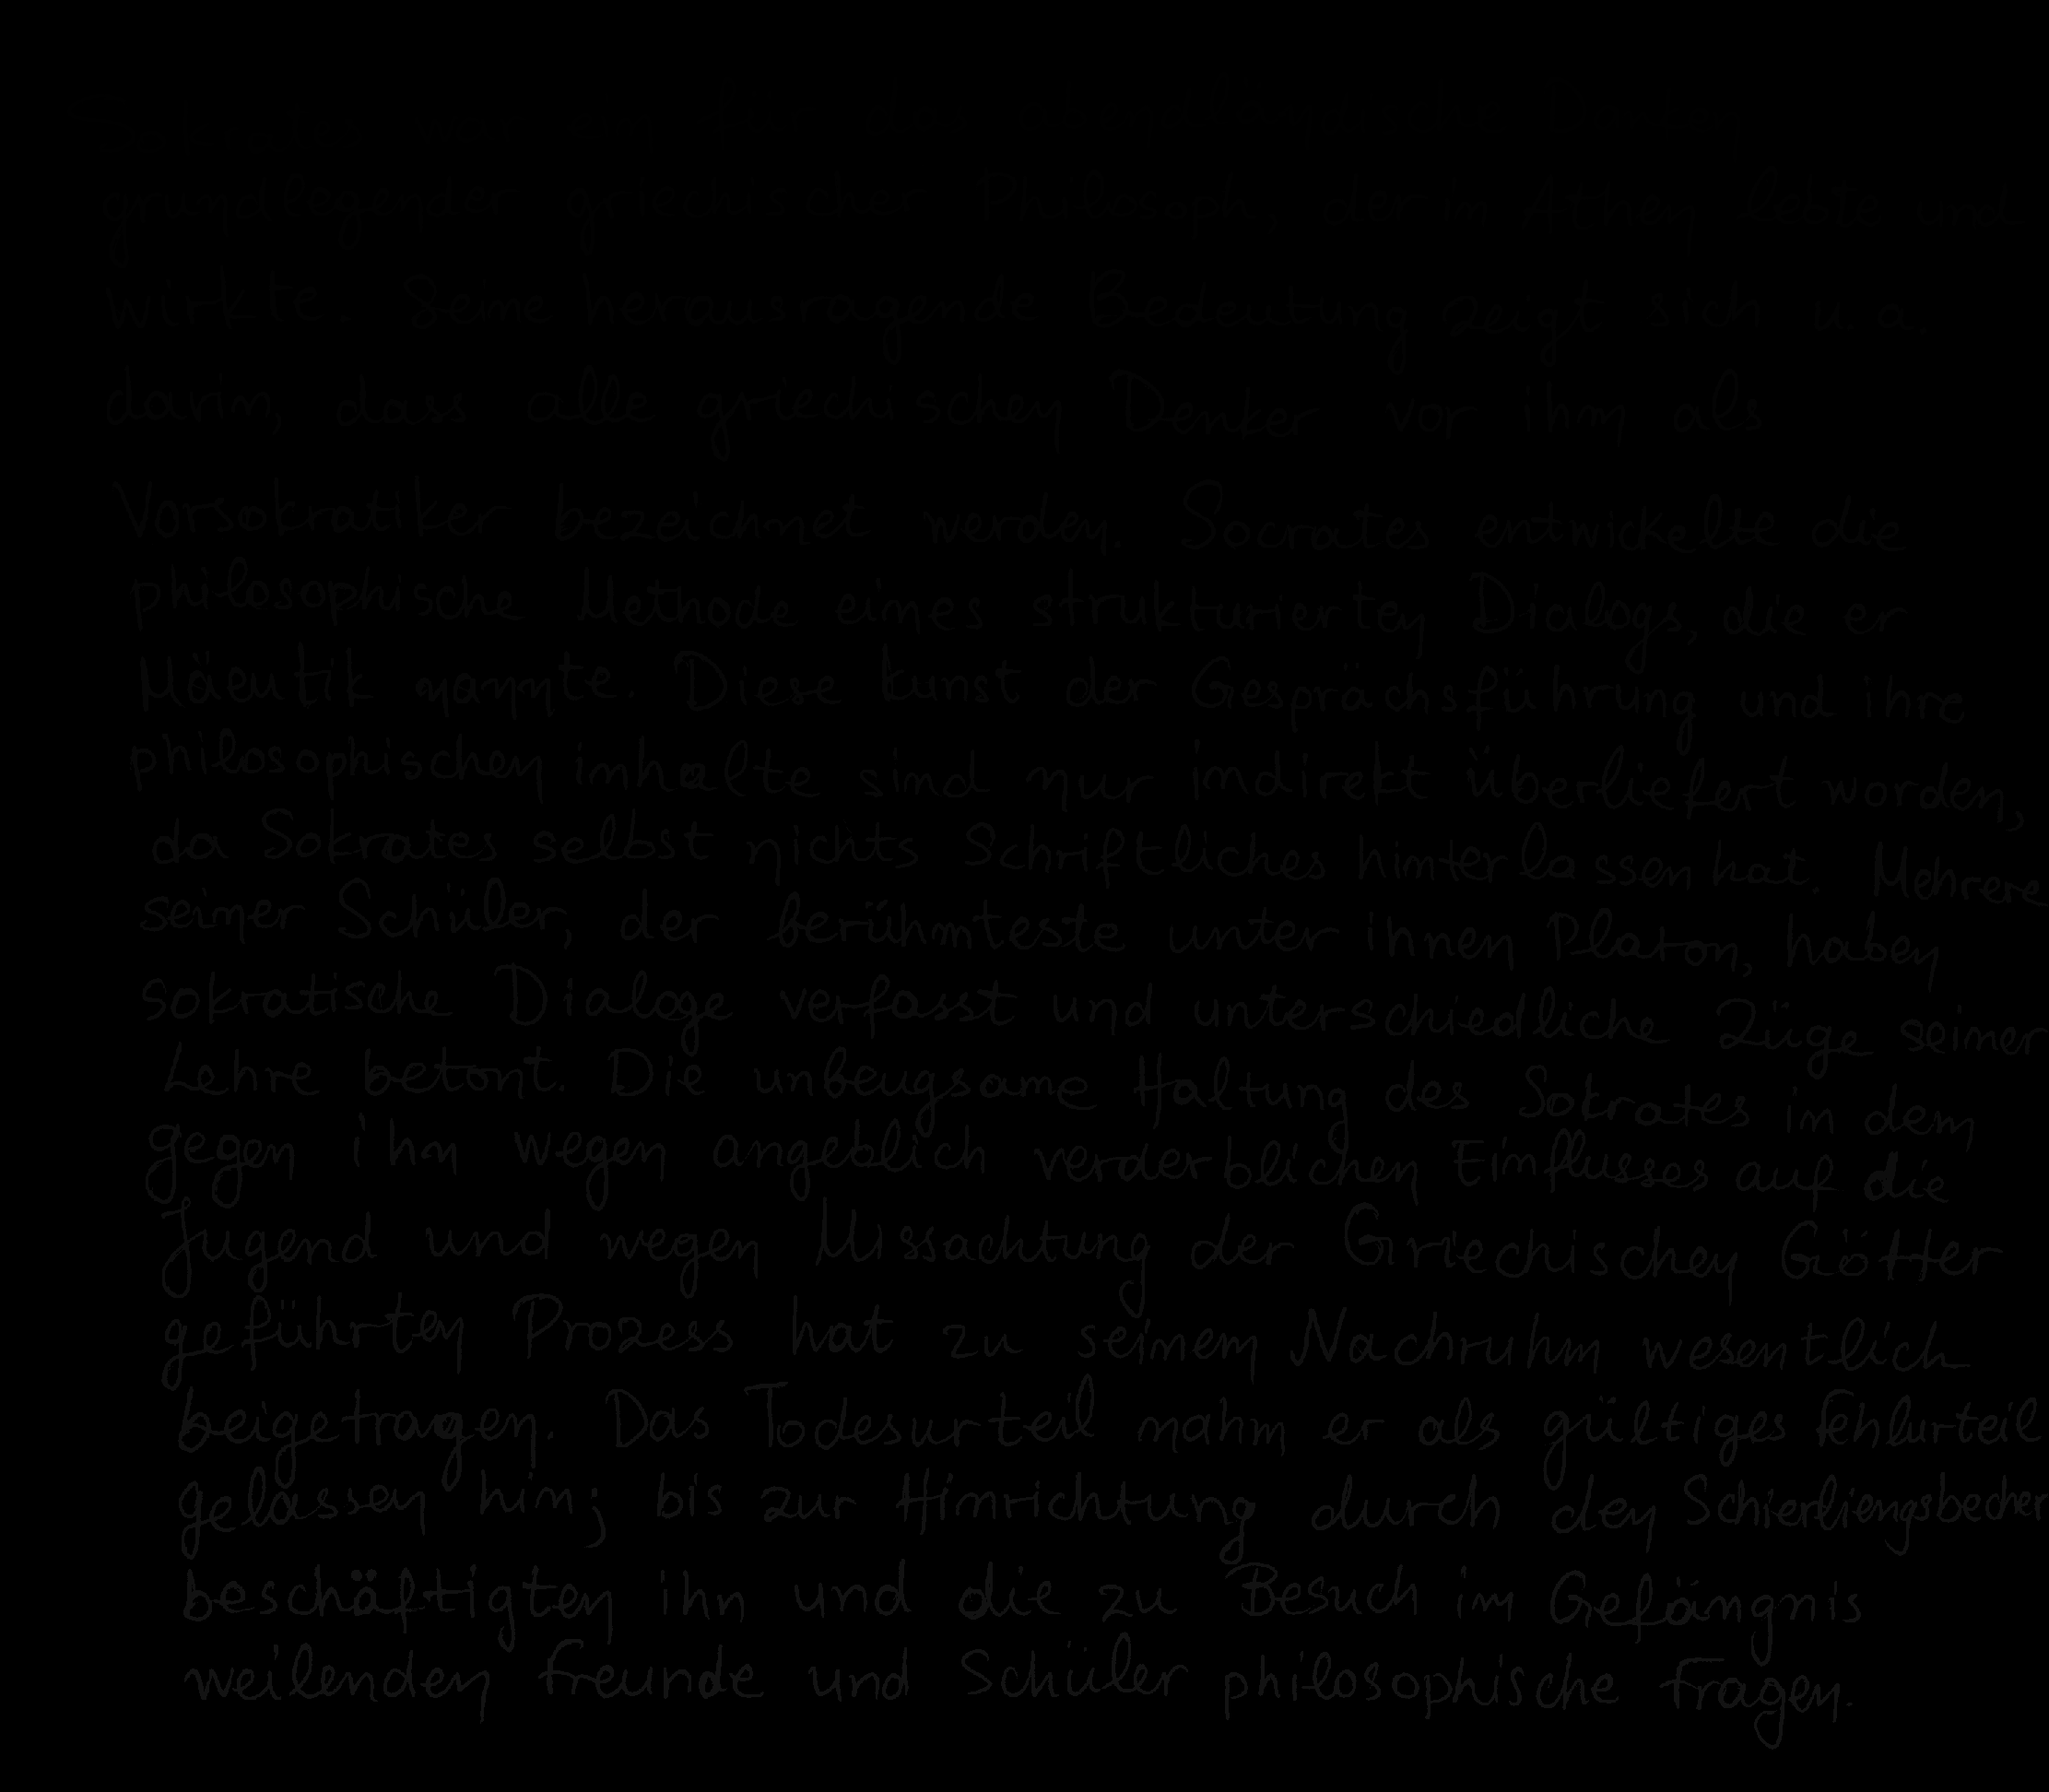 Sokrates war ein für das abendländische Denken
grundlegender griechischer Philosoph, der in Athen lebte und
wirkte. Seine herausragende Bedeutung zeigt sich u.a.
darin, dass alle griechischen Denker vor ihm als
Vorsokratiker bezeichnet werden. Socrates entwickelte die
philosophische Methode eines strukturierten Dialogs, die er
Mäeutik nannte. Diese kunst der Gesprächsführung und ihre
philosophischen inhalte sind nur indirekt überliefert worden,
da Sokrates selbst nichts Schriftliches hinterlassen hat. Mehrere
seiner Schüler, der berühmteste unter ihnen Platon, haben
sokratische Dialoge verfasst und unterschiedliche Züge seiner
Lehre betont. Die unbeugsame Haltung des Sokrates in dem
gegen ihn wegen angeblich verderblichen Einflusses auf die
Jugend und wegen Missachtung der Griechischen Götter
geführten Prozess hat zu seinem Nachruhm wesentlich
beigetragen. Das Todesurteil nahm er als gültiges fehlurteil
gelassen hin; bis zur Hinrichtung durch den Schierliengsbecher
beschäftigten ihn und die zu Besuch im Gefängnis
weilenden freunde und Schüler philosophische fragen.